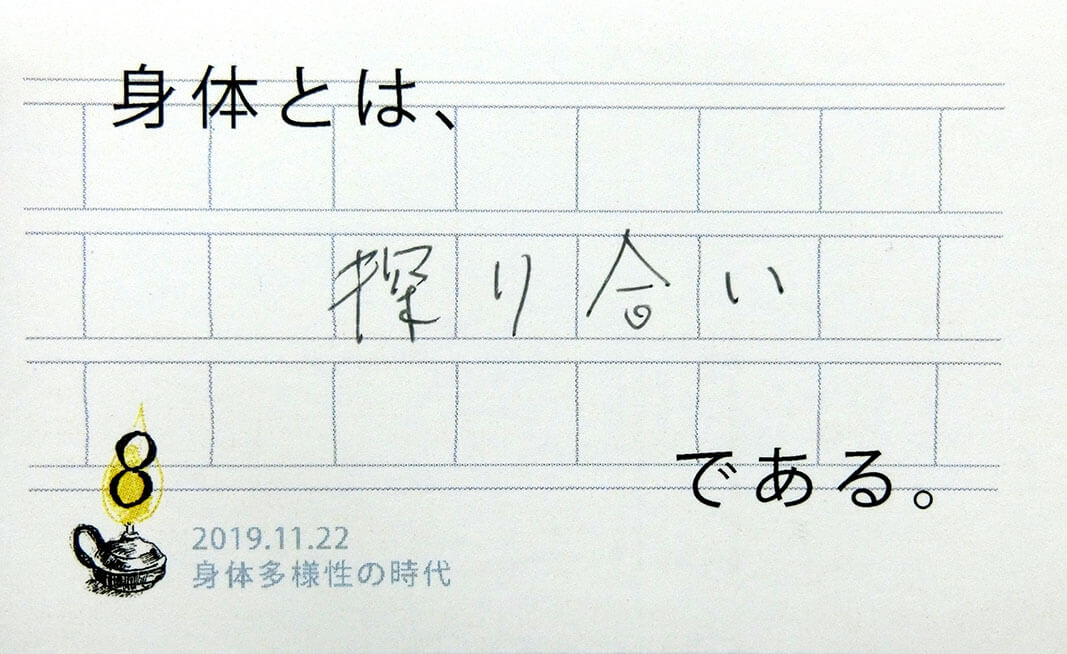 身体とは、
探り合い
である。
8
2019.11.22
身体多様性の時代